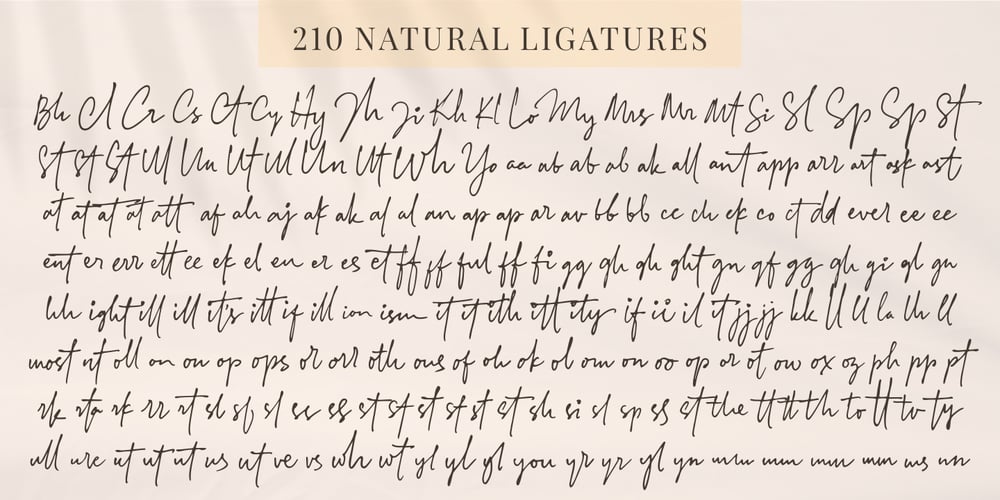 210 NATURAL LIGATURES
Bh Cl Cr Cs Ct Cy Hy Jh Ji Kh Kl Lo My Mrs Mr Mt Si Sl Sp Sp St
St St St Ul Un Ut Ul Un Ut Wh Yo aa ab ab ab ak all ant app arr art ask ast
at at at at att af ah aj ak ak al al an ap ap ar av bb bb cc ch ck co ct dd ever ee ee
ent er err ett ee ek el en er es et ff ff ful ff fi gg gh gh ght gn gf gg gh gi gl gn
hh ight ill ill it's itt if ill ion ism it it ith itt ity if ii il it jj jj kk ll ll la lh ll
most nt oll on on op ops or orr oth ous of oh ok ol om on oo op or ot ow ox oz ph pp pt
rk rta rk rr rt sl sf sl ss ss st st st st st st sh si sl sp ss st the tt tt th to tt tv ty
ull ure ut ut ut us ut ve vs wh wt yl yl yl you yr yr yl yn